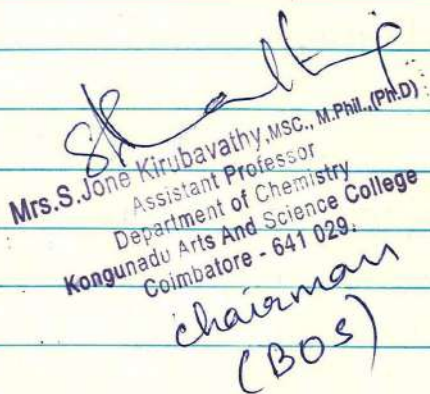 Mrs.S.Jone Kirubavathy,MSC., M.Phil.,(Ph.D)
Assistant Professor
Department of Chemistry
Kongunadu Arts And Science College
Coimbatore - 641 029.
chairman
(BOS)